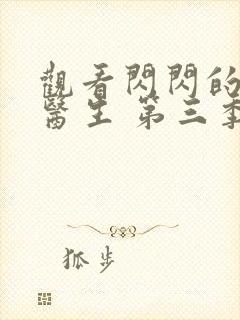 觀看閃閃的
醫生 第三季
狐步